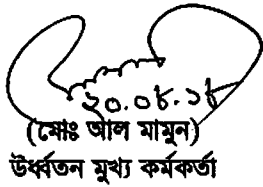 ২০.০৪.১৪
(মোঃ আল মামুন)
উর্ধ্বতন মুখ্য কর্মকর্তা